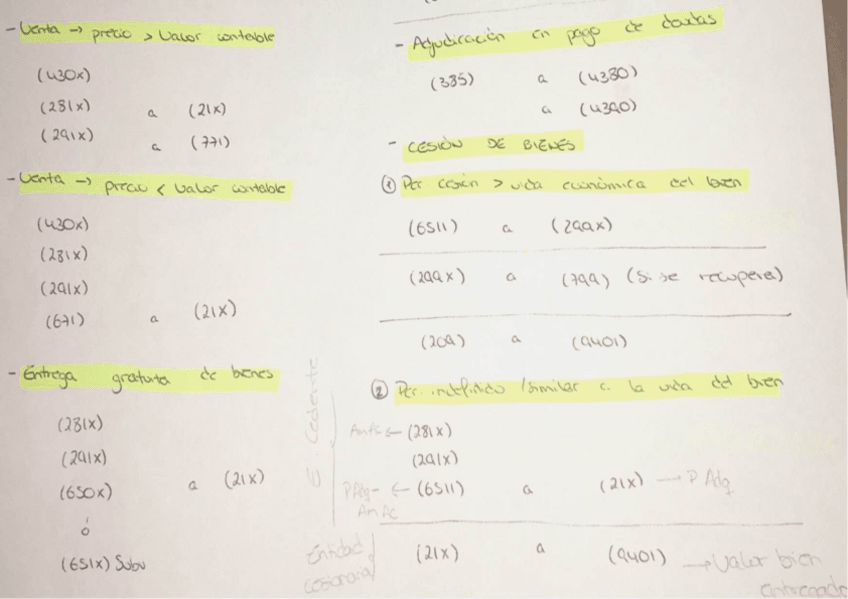 - Venta → precio > Valor contable
(430x)
(281x) a (21x)
(291x) a (771)
- Venta → precio < Valor contable
(430x)
(281x)
(291x)
(671) a (21x)
- Entrega gratuita de bienes
(281x)
(291x)
(650x) a (21x)
ó
(651x) Subv
- Adjudicación en pago de deudas
(335) a (4380)
a (4390)
- CESIÓN DE BIENES
① Per cesión > vida económica del bien
(6511) a (299x)
(299x) a (799) (Si se recupera)
(209) a (9401)
② Per. indefinido / similar a la vida del bien
E. Cedente
AmAc ← (281x)
(291x)
PAdq- ← (6511) a (21x) → P Adq
AmAc
Entidad cesionaria
(21x) a (9401) → Valor bien
entregado